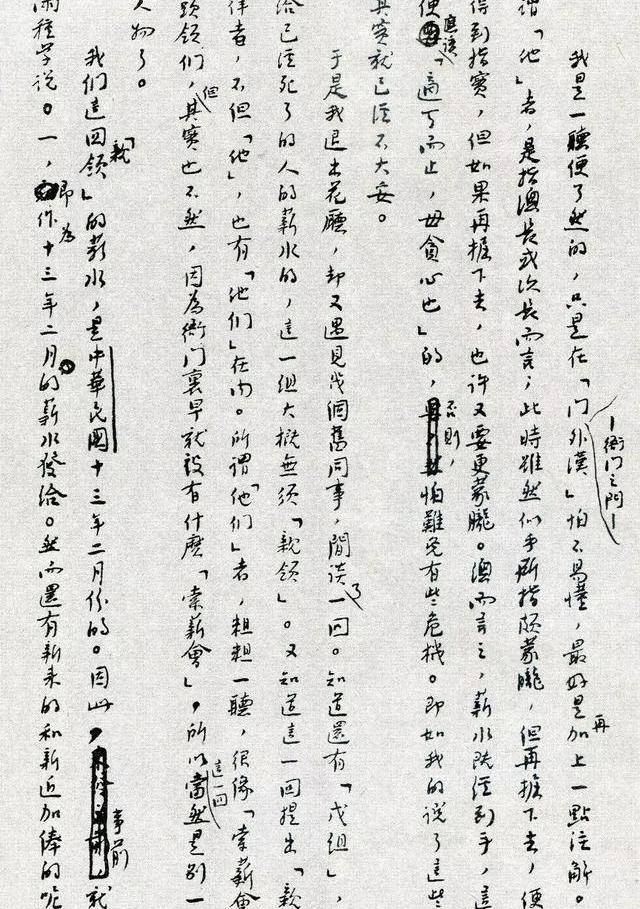 我是一聽便了然的，只是在「门外漢」—衙门之门—怕不易懂，最好是再加上一點注解。
謂「他」者，是指總長或次長而言；此時雖然似乎所指頗蒙朧，但再掘下去，便
得到指實，但如果再掘下去，也许又要更蒙朧。總而言之，薪水既經到手，這
便應該「適可而止，毋貪心也」的，否則，怕難免有些危機。即如我的说了這些
其實就已經不大妥。
于是我退出花廳，却又遇見几個舊同事，閒談了一回。知道還有「戊組」，
给已經死了的人的薪水的，這一組大概無须「親領」。又知道這一回提出「親
律者，不但「他」，也有「他们」在内。所謂「他们」者，粗粗一聽，很像「索薪會
頭領们，但其實也不然，因為衙门裏早就没有什麽「索薪會」，所以這一回當然是别一
人物了。
我们這回「親領」的薪水，是中華民國十三年二月份的。因此，事前就
兩種学说。一，即作為十三年二月的薪水發给。然而還有新来的和新近加俸的呢